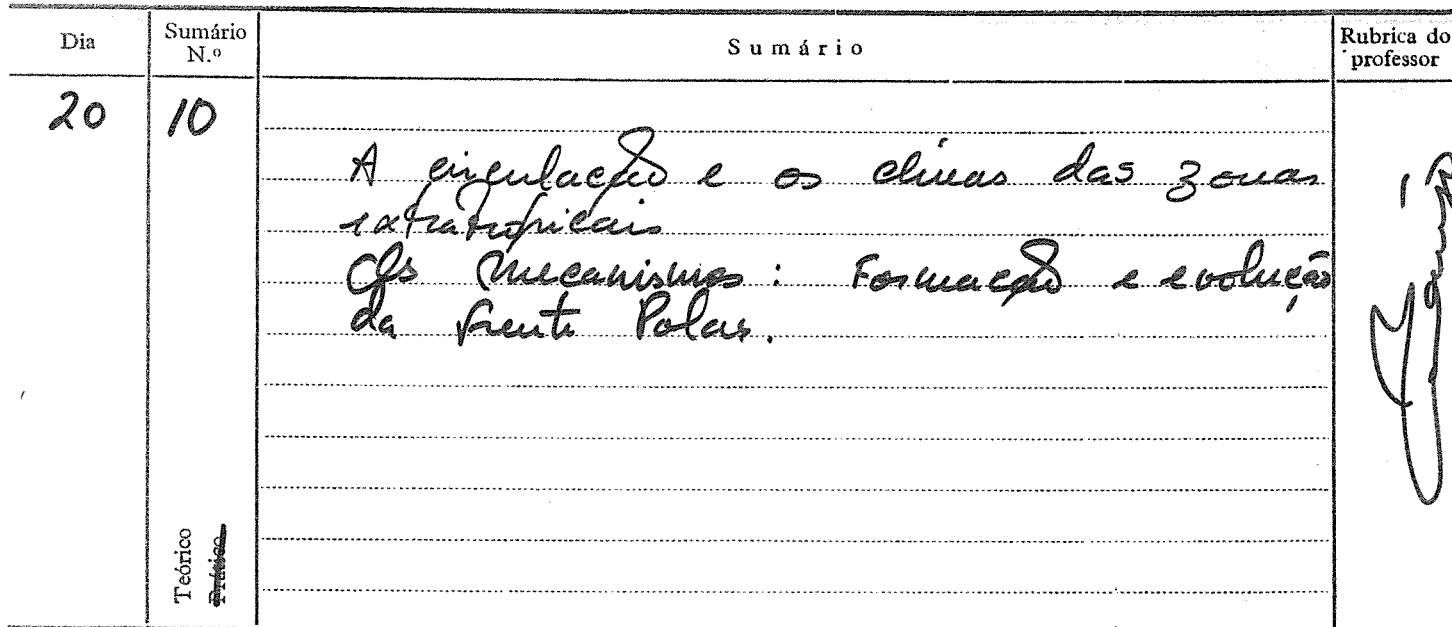 Dia Sumário N.º Sumário Rubrica do professor
20 10
A circulação e os climas das zonas
extratropicais
Os mecanismos: Formação e evolução
da frente Polar.
Teórico
Prático